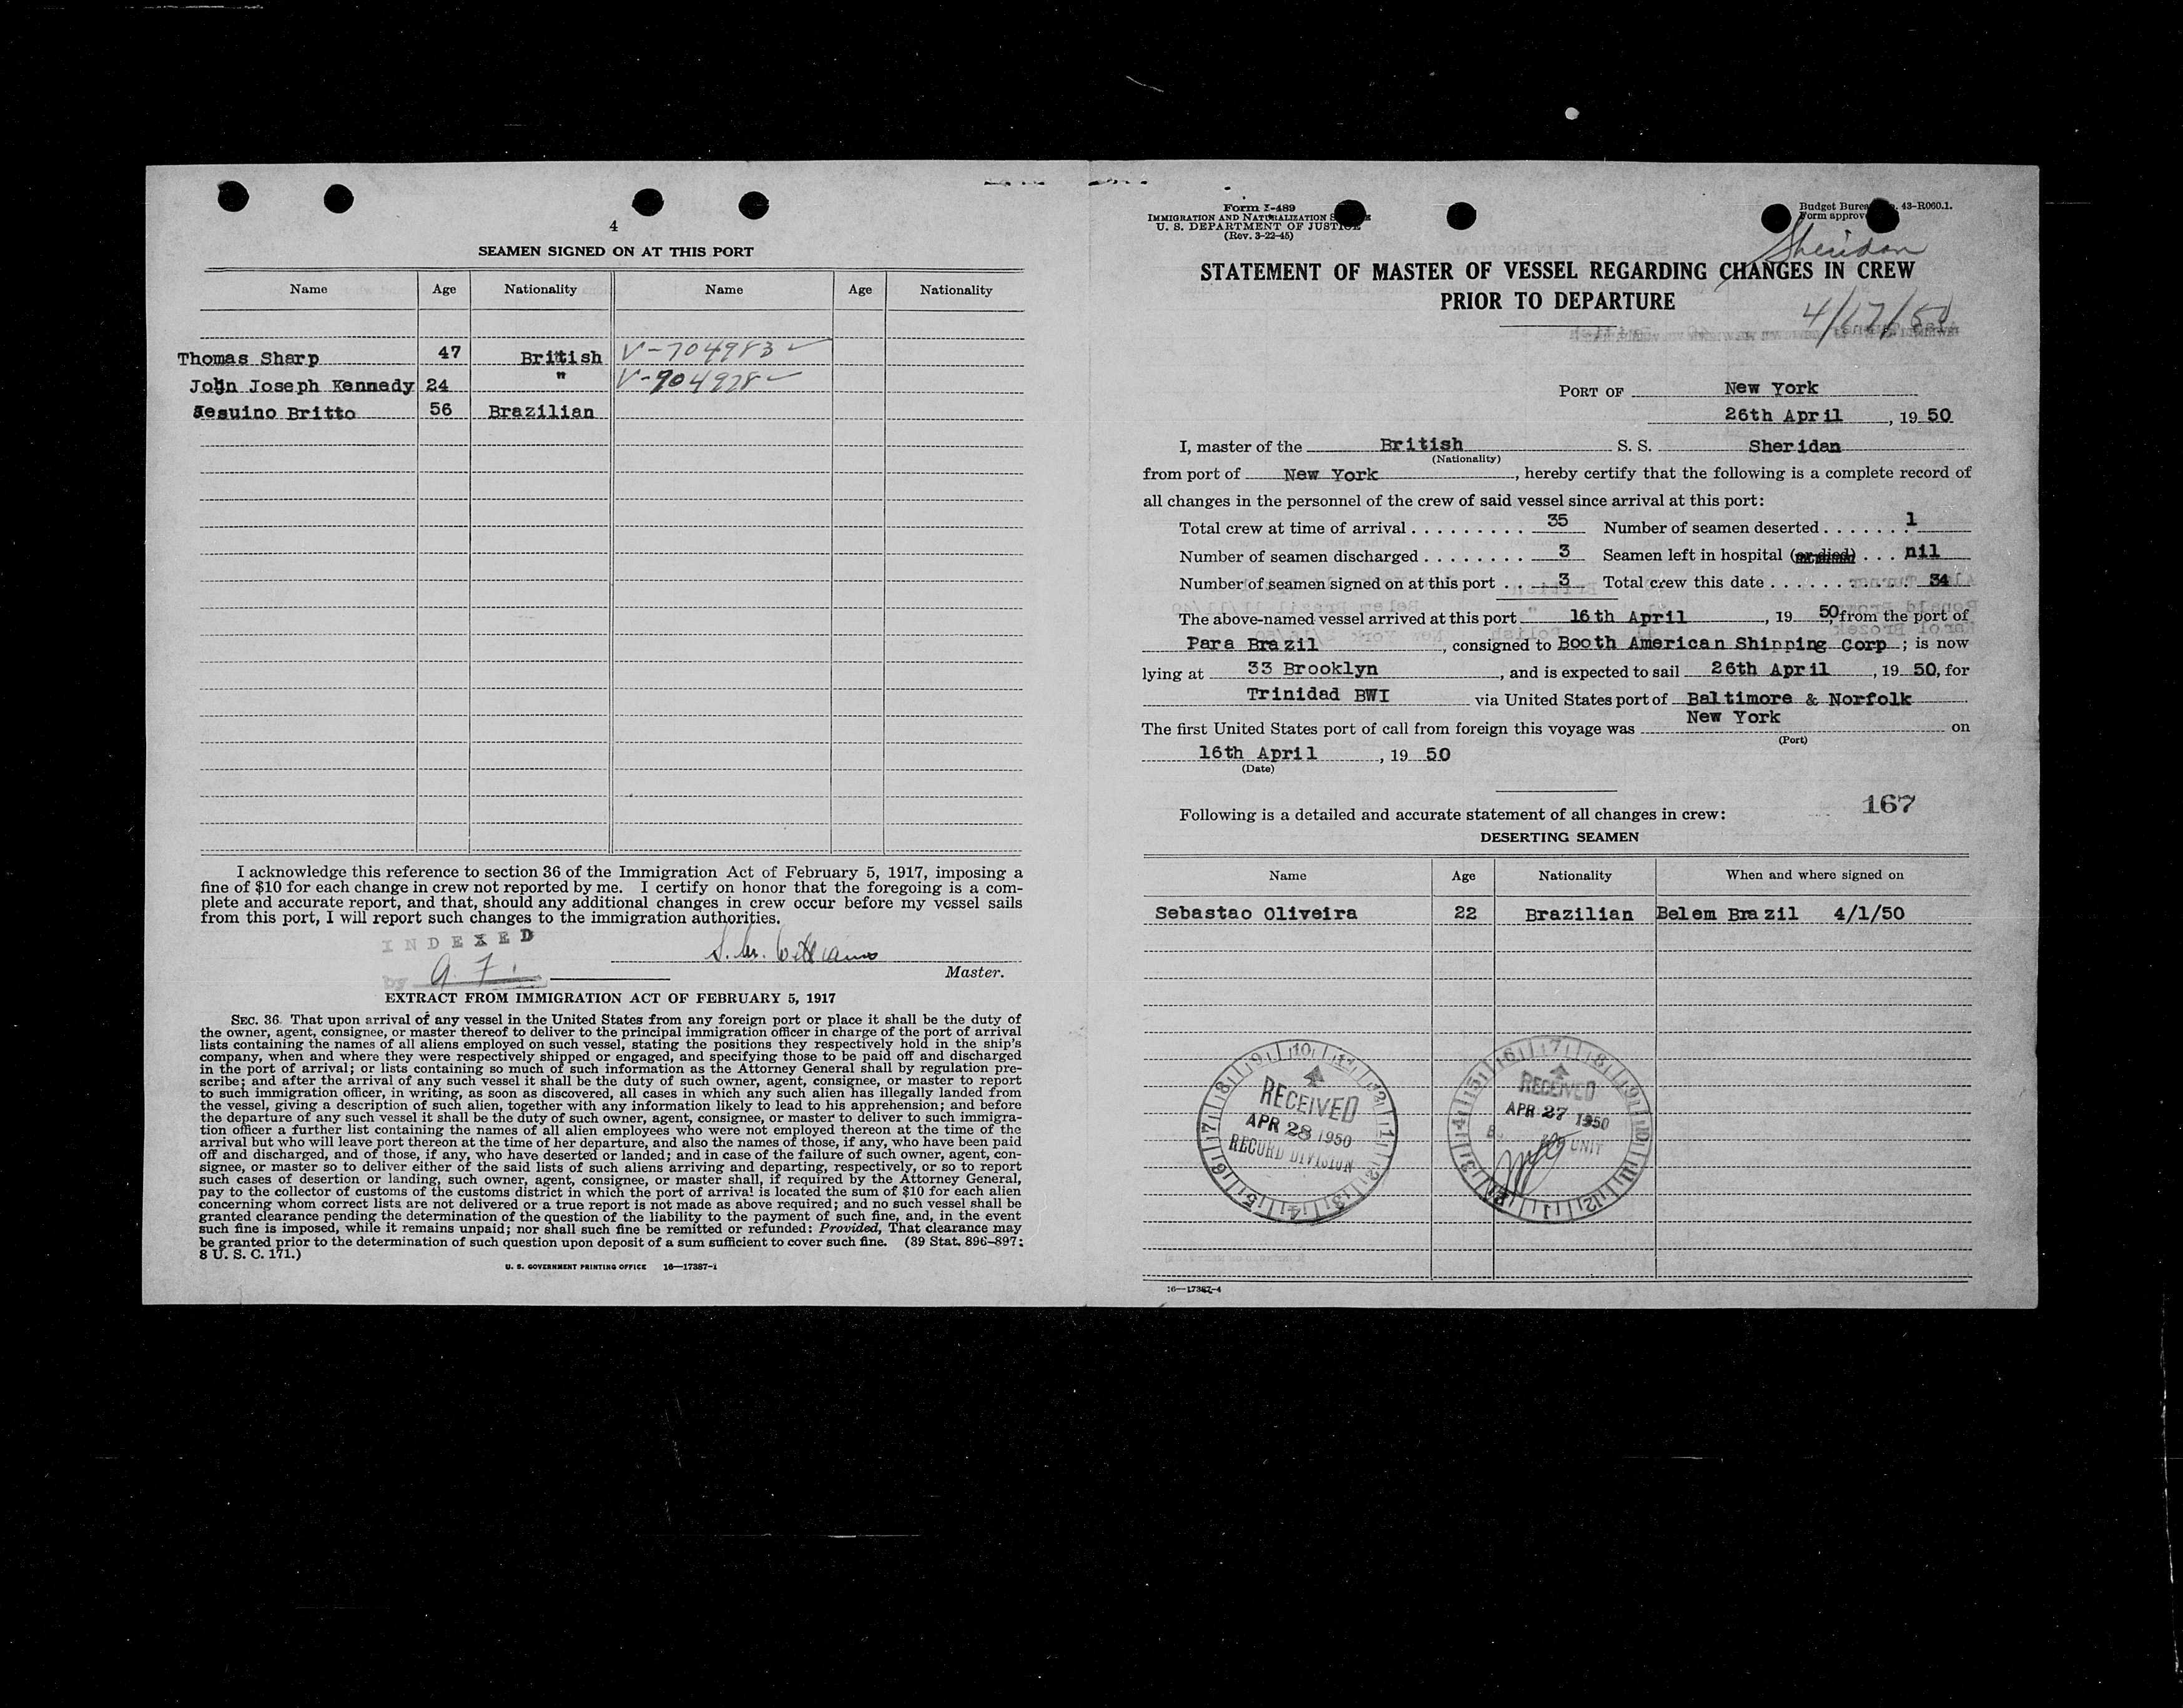 4
SEAMEN SIGNED ON AT THIS PORT
Name Age Nationality Name Age Nationality
Thomas Sharp 47 British V-704983
John Joseph Kennedy 24 " V-904928
Jesuino Britto 56 Brazilian
I acknowledge this reference to section 36 of the Immigration Act of February 5, 1917, imposing a
fine of $10 for each change in crew not reported by me. I certify on honor that the foregoing is a com-
plete and accurate report, and that, should any additional changes in crew occur before my vessel sails
from this port, I will report such changes to the immigration authorities.
INDEXED
by A. F.
Master.
EXTRACT FROM IMMIGRATION ACT OF FEBRUARY 5, 1917
SEC. 36. That upon arrival of any vessel in the United States from any foreign port or place it shall be the duty of
the owner, agent, consignee, or master thereof to deliver to the principal immigration officer in charge of the port of arrival
lists containing the names of all aliens employed on such vessel, stating the positions they respectively hold in the ship's
company, when and where they were respectively shipped or engaged, and specifying those to be paid off and discharged
in the port of arrival; or lists containing so much of such information as the Attorney General shall by regulation pre-
scribe; and after the arrival of any such vessel it shall be the duty of such owner, agent, consignee, or master to report
to such immigration officer, in writing, as soon as discovered, all cases in which any such alien has illegally landed from
the vessel, giving a description of such alien, together with any information likely to lead to his apprehension; and before
the departure of any such vessel it shall be the duty of such owner, agent, consignee, or master to deliver to such immigra-
tion officer a further list containing the names of all alien employees who were not employed thereon at the time of the
arrival but who will leave port thereon at the time of her departure, and also the names of those, if any, who have been paid
off and discharged, and of those, if any, who have deserted or landed; and in case of the failure of such owner, agent, con-
signee, or master so to deliver either of the said lists of such aliens arriving and departing, respectively, or so to report
such cases of desertion or landing, such owner, agent, consignee, or master shall, if required by the Attorney General,
pay to the collector of customs of the customs district in which the port of arrival is located the sum of $10 for each alien
concerning whom correct lists are not delivered or a true report is not made as above required; and no such vessel shall be
granted clearance pending the determination of the question of the liability to the payment of such fine, and, in the event
such fine is imposed, while it remains unpaid; nor shall such fine be remitted or refunded: Provided, That clearance may
be granted prior to the determination of such question upon deposit of a sum sufficient to cover such fine. (39 Stat. 896–897;
8 U. S. C. 171.)
U. S. GOVERNMENT PRINTING OFFICE 16—17387-1
Form I-489
IMMIGRATION AND NATURALIZATION
U. S. DEPARTMENT OF JUSTICE
(Rev. 3-22-45)
Budget Burea 43-R060.1.
Form approv
Sheridan
STATEMENT OF MASTER OF VESSEL REGARDING CHANGES IN CREW
PRIOR TO DEPARTURE
4/17/50
PORT OF New York
26th April, 19 50
I, master of the British S. S. Sheridan
(Nationality)
from port of New York, hereby certify that the following is a complete record of
all changes in the personnel of the crew of said vessel since arrival at this port:
Total crew at time of arrival 35 Number of seamen deserted 1
Number of seamen discharged 3 Seamen left in hospital (or died) nil
Number of seamen signed on at this port 3 Total crew this date 34
The above-named vessel arrived at this port 16th April, 19 50, from the port of
Para Brazil, consigned to Booth American Shipping Corp; is now
lying at 33 Brooklyn, and is expected to sail 26th April, 19 50, for
Trinidad BWI via United States port of Baltimore & Norfolk
The first United States port of call from foreign this voyage was New York on
(Port)
16th April, 19 50
(Date)
167
Following is a detailed and accurate statement of all changes in crew:
DESERTING SEAMEN
Name Age Nationality When and where signed on
Sebastao Oliveira 22 Brazilian Belem Brazil 4/1/50
RECEIVED
APR 28 1950
RECORD DIVISION
RECEIVED
APR 27 1950
UNIT
16—17387-4